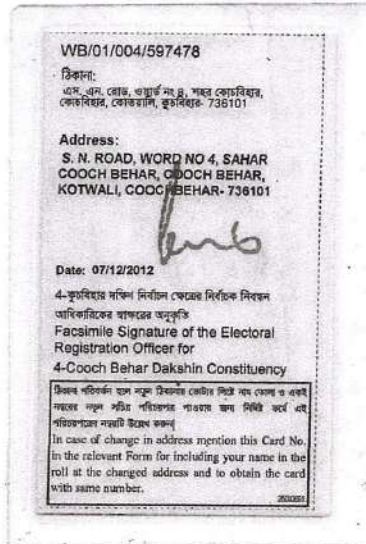 WB/01/004/597478
ঠিকানা:
এস. এন. রোড, ওয়ার্ড নং ৪, শহর কোচবিহার,
কোচবিহার, কোতয়ালি, কুচবিহার- 736101
Address:
S. N. ROAD, WORD NO 4, SAHAR
COOCH BEHAR, COOCH BEHAR,
KOTWALI, COOCH BEHAR- 736101
Date: 07/12/2012
4-কুচবিহার দক্ষিণ নির্বাচন ক্ষেত্রের নির্বাচক নিবন্ধন
আধিকারিকের স্বাক্ষরের অনুকৃতি
Facsimile Signature of the Electoral
Registration Officer for
4-Cooch Behar Dakshin Constituency
ঠিকানা পরিবর্তন হলে নতুন ঠিকানার ভোটার লিষ্টে নাম তোলা ও একই
নম্বরের নতুন সচিত্র পরিচয়পত্র পাওয়ার জন্য নির্দিষ্ট ফর্মে এই
পরিচয়পত্রের নম্বরটি উল্লেখ করুন|
In case of change in address mention this Card No.
in the relevant Form for including your name in the
roll at the changed address and to obtain the card
with same number.